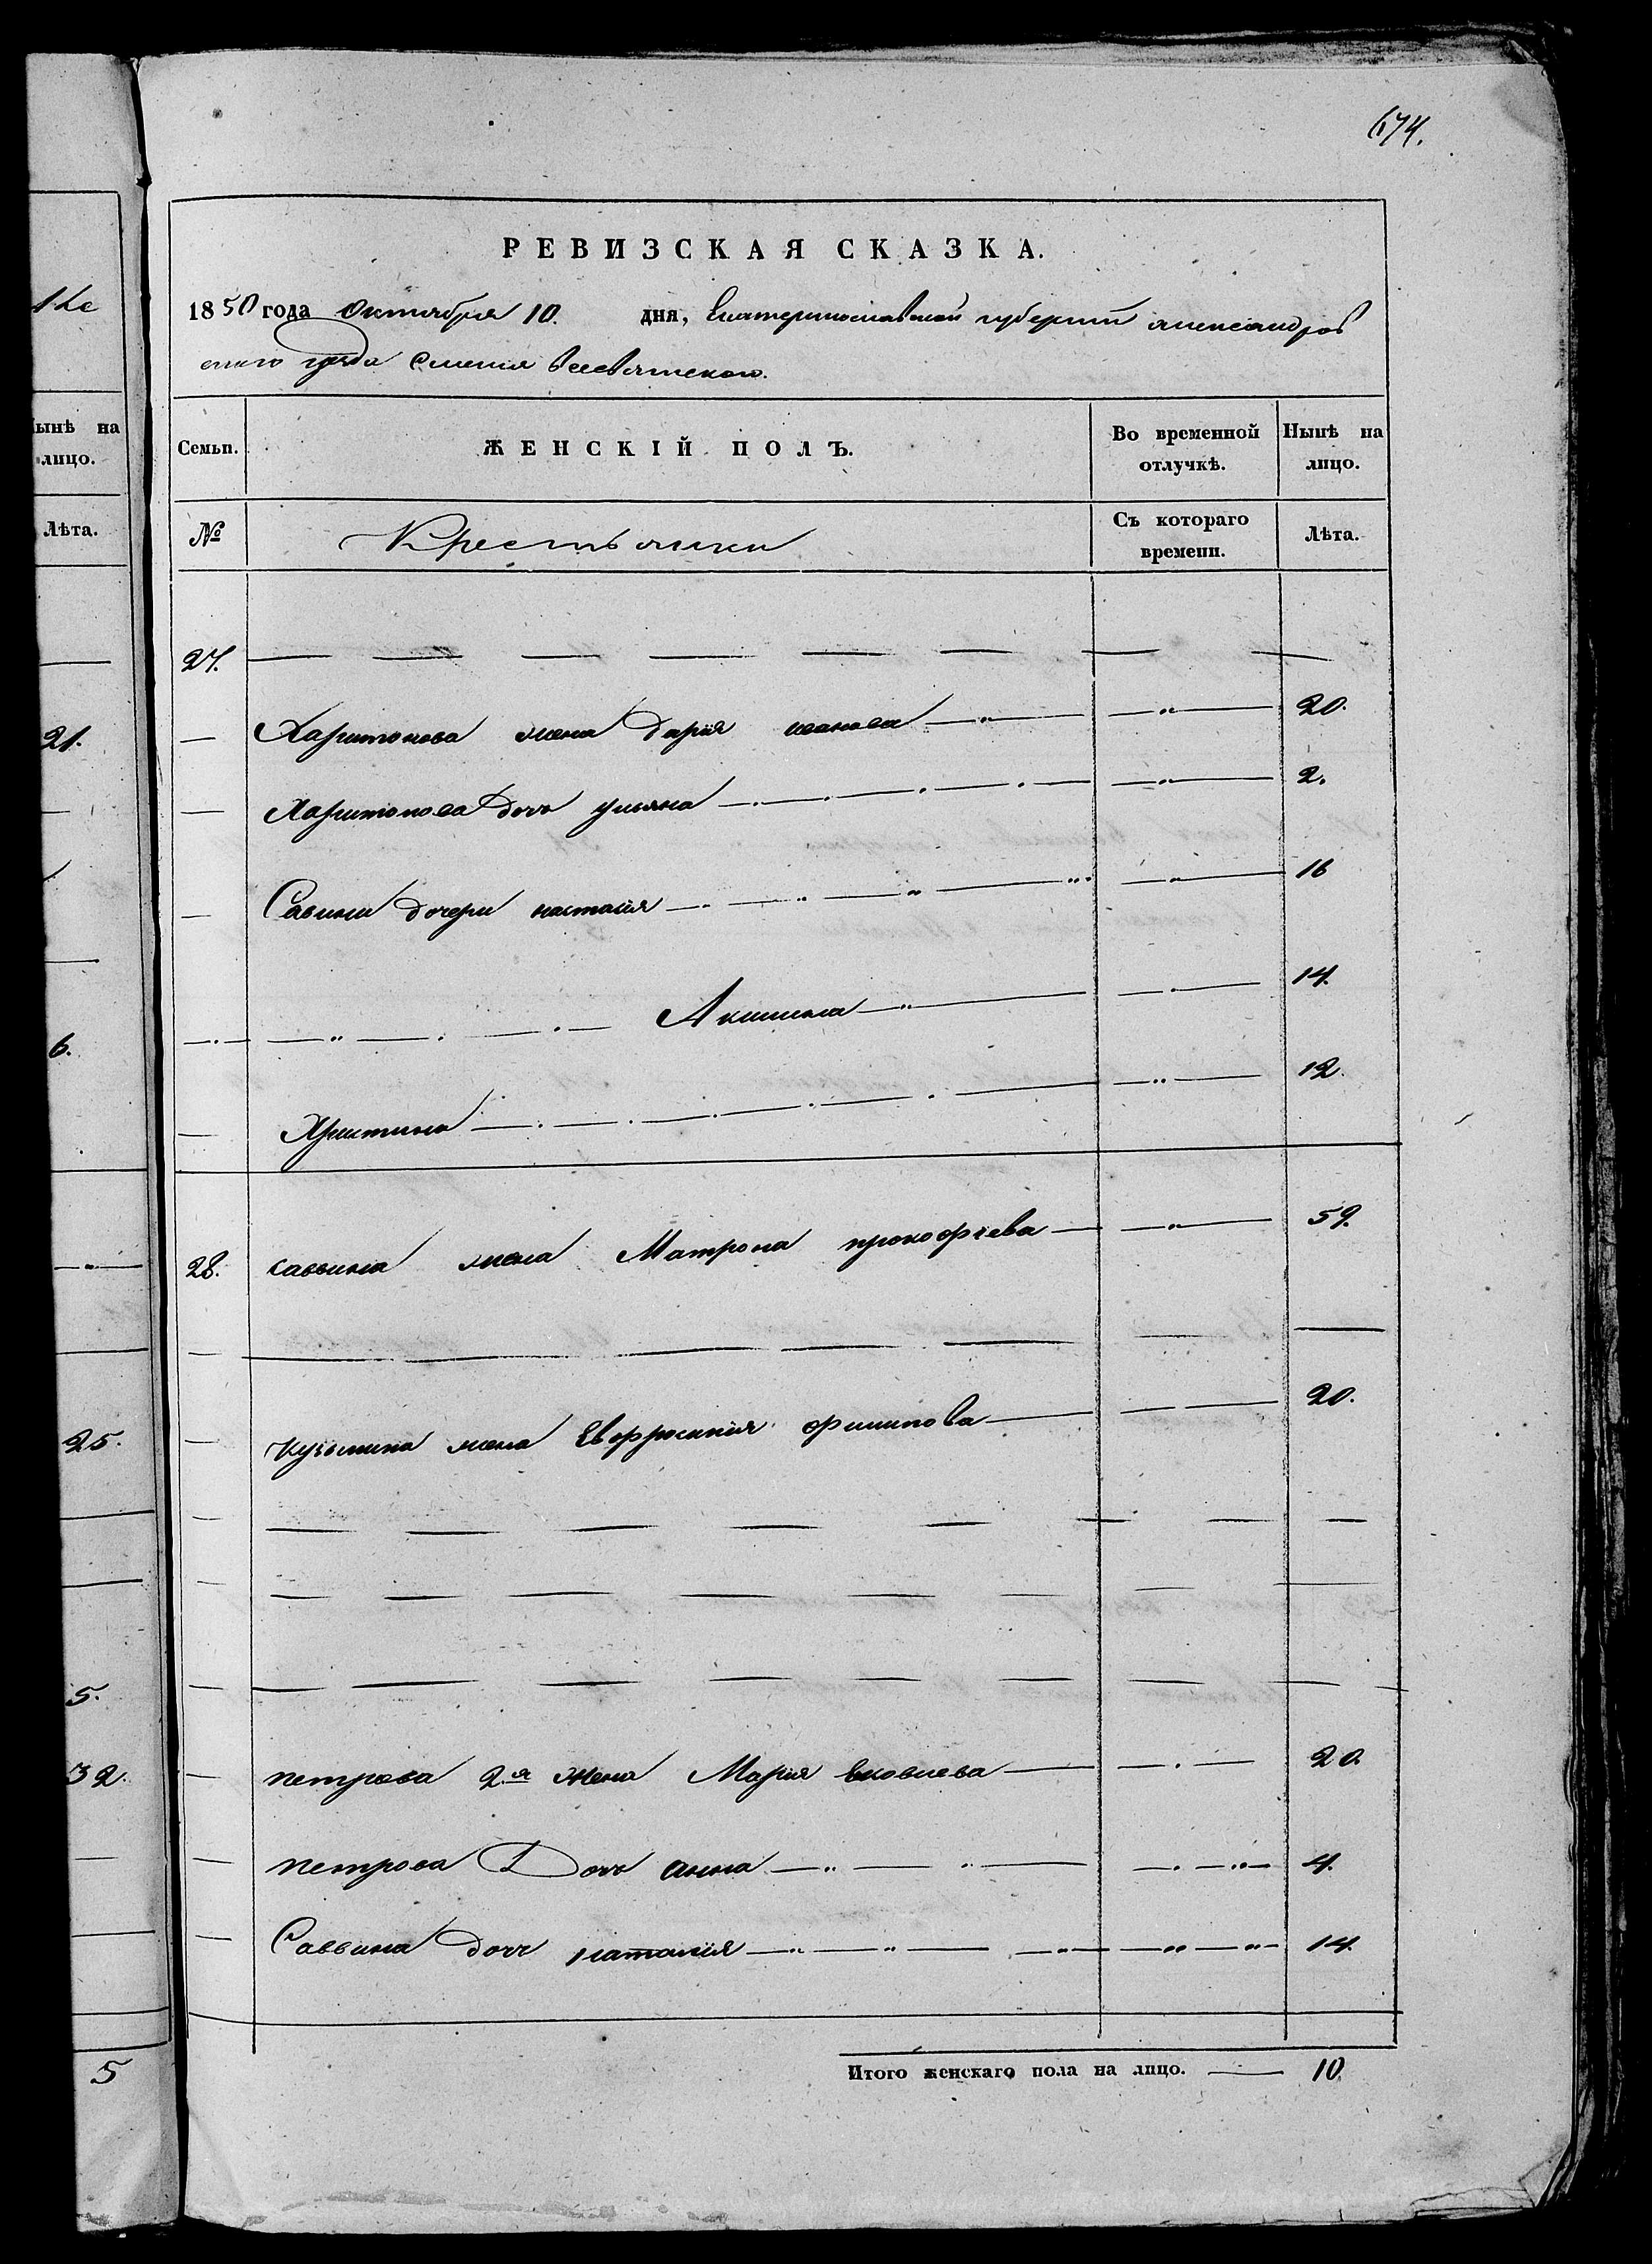 674.
РЕВИЗСКАЯ СКАЗКА.
1850 года Октября 10. дня, Екатеринославской губернии александров
скаго уезда Селения всесвятскаго.
ынѣ на
лицо.
Лѣта.
21.
6.
25.
5.
32.
5
Семьи. ЖЕНСКІЙ ПОЛЪ. Во временной отлучкѣ. Нынѣ на лицо.
№ Крестьянки Съ котораго времени. Лѣта.
27.
Харитонова жена Дария иванова 20.
Харитонова Дочь ульяна 2.
Савины дочери настасия 16
Акинина 14.
Христина 12.
28. саввина жена Матрона прокофиева 59.
кузьмина жена Евфросиния филипова 20.
петрова 2я жена Мария Яковлева 20.
петрова Дочь анна 4.
Саввина дочь наталия 14.
Итого женскаго пола на лицо. 10.